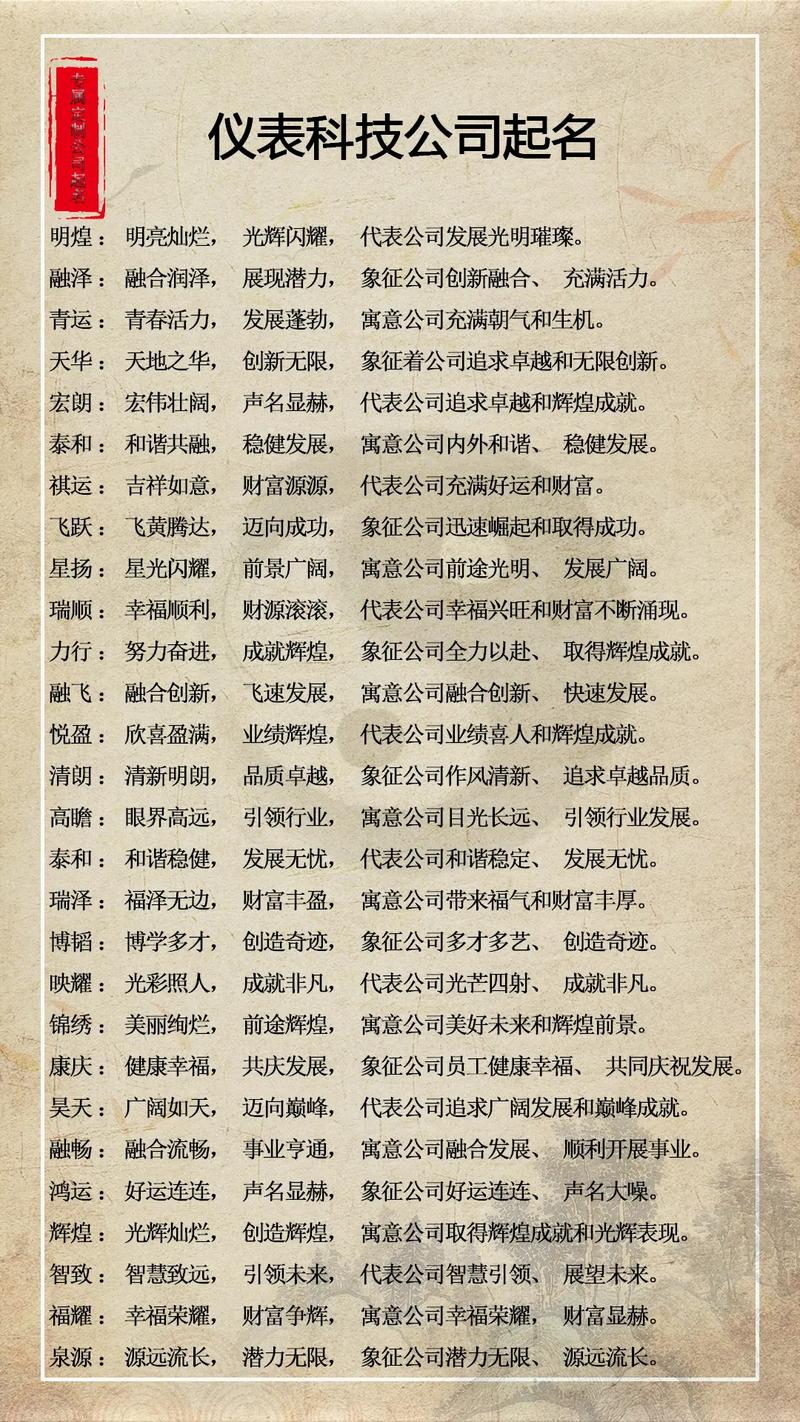 仪表科技公司起名
明煌： 明亮灿烂， 光辉闪耀， 代表公司发展光明璀璨。
融泽： 融合润泽， 展现潜力， 象征公司创新融合、 充满活力。
青运： 青春活力， 发展蓬勃， 寓意公司充满朝气和生机。
天华： 天地之华， 创新无限， 象征着公司追求卓越和无限创新。
宏朗： 宏伟壮阔， 声名显赫， 代表公司追求卓越和辉煌成就。
泰和： 和谐共融， 稳健发展， 寓意公司内外和谐、 稳健发展。
祺运： 吉祥如意， 财富源源， 代表公司充满好运和财富。
飞跃： 飞黄腾达， 迈向成功， 象征公司迅速崛起和取得成功。
星扬： 星光闪耀， 前景广阔， 寓意公司前途光明、 发展广阔。
瑞顺： 幸福顺利， 财源滚滚， 代表公司幸福兴旺和财富不断涌现。
力行： 努力奋进， 成就辉煌， 象征公司全力以赴、 取得辉煌成就。
融飞： 融合创新， 飞速发展， 寓意公司融合创新、 快速发展。
悦盈： 欣喜盈满， 业绩辉煌， 代表公司业绩喜人和辉煌成就。
清朗： 清新明朗， 品质卓越， 象征公司作风清新、 追求卓越品质。
高瞻： 眼界高远， 引领行业， 寓意公司目光长远、 引领行业发展。
泰和： 和谐稳健， 发展无忧， 代表公司和谐稳定、 发展无忧。
瑞泽： 福泽无边， 财富丰盈， 寓意公司带来福气和财富丰厚。
博韬： 博学多才， 创造奇迹， 象征公司多才多艺、 创造奇迹。
映耀： 光彩照人， 成就非凡， 代表公司光芒四射、 成就非凡。
锦绣： 美丽绚烂， 前途辉煌， 寓意公司美好未来和辉煌前景。
康庆： 健康幸福， 共庆发展， 象征公司员工健康幸福、 共同庆祝发展。
昊天： 广阔如天， 迈向巅峰， 代表公司追求广阔发展和巅峰成就。
融畅： 融合流畅， 事业亨通， 寓意公司融合发展、 顺利开展事业。
鸿运： 好运连连， 声名显赫， 象征公司好运连连、 声名大噪。
辉煌： 光辉灿烂， 创造辉煌， 寓意公司取得辉煌成就和光辉表现。
智致： 智慧致远， 引领未来， 代表公司智慧引领、 展望未来。
福耀： 幸福荣耀， 财富争辉， 寓意公司幸福荣耀， 财富显赫。
泉源： 源远流长， 潜力无限， 象征公司潜力无限、 源远流长。